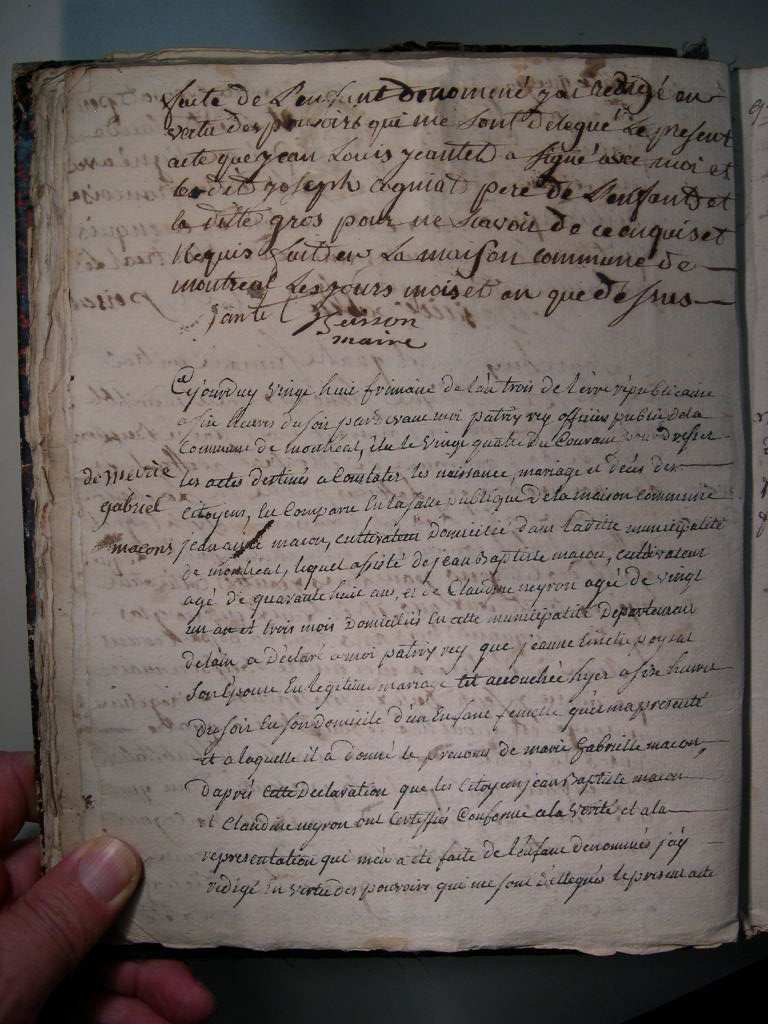 faite de L'enfant denommé j'ai Redigé en
vertu des pouvoirs qui me sont delegué Le present
acte que jean Louis jeantet a signé avec moi et
le dit joseph cogniat pere de L'enfant et
la ditte gros pour ne scavoir de ce enquis et
Requis fait en La maison commune de
montreal Les jours mois et an que dessus
jantet
maire
Cejourduy vingt huit frimaire de l'an trois de l'erre républicaine
a six heures du soir pardevant moi patrix rey officier public de la
Commune de montréal, élu le vingt quatre du Courant pour dresser
les actes destinés a Constater les naissance, mariage et décès des
citoyens, est Comparu En la salle publique de la maison commune
de marie
gabriel
macons
jean macon, cultivateur domicilié dans laditte municipalité
de montreal, lequel assisté de jean Baptiste macon, cultivateur
agé de quarante huit ans, et de Claudine neyron agée de vingt
un an et trois mois domiciliés En cette municipalité Departement
delain, a Déclaré a moi patrix rey que jeanne
Son Epouse En legitime mariage est accouchée hyer a six heures
du soir En son Domicile d'un Enfant femelle qu'il ma presenté
et a laquelle il a donné le prenoms de marie Gabrielle macon,
Daprés cette Declaration que les Citoyen jean Baptiste macon
et Claudine neyron ont Certiffiés Conforme a la verité et a la
representation qui m'en a été faite de l'enfant denommés j'ay
redigé En vertu des pouvoirs qui me sont déllegués le present acte